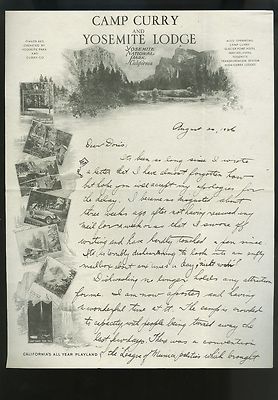 CAMP CURRY
AND
YOSEMITE LODGE
YOSEMITE
NATIONAL
PARK
California
OPERATED BY
YOSEMITE PARK
AND
CURRY CO.
ALSO OPERATING
CAMP CURRY
GLACIER POINT HOTEL
YOSEMITE
TRANSPORTATION SYSTEM
HIGH SIERRA CAMPS
August 20, 1926
Dear Doris:
Its been so long since I wrote
a letter that I have almost forgotten how
but hope you will accept my apologies for
the delay. I became so disgusted about
three weeks ago after not having received any
mail for a week or so that I swore off
writing and have hardly touched a pen since
Its terribly disheartening to look into an empty
mailbox about six times a day
Dishwashing no longer holds any attraction
for me. I am now a porter and having
a wonderful time at it. The camp is crowded
to capacity with people being turned away the
last few days. There was a convention
of the League of Municipalities which brought
CALIFORNIA'S ALL YEAR PLAYLAND